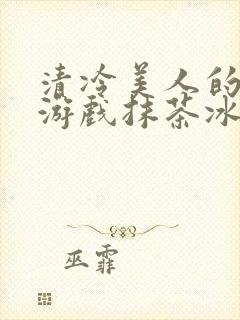 清冷美人的
游戏抹茶冰
巫霏